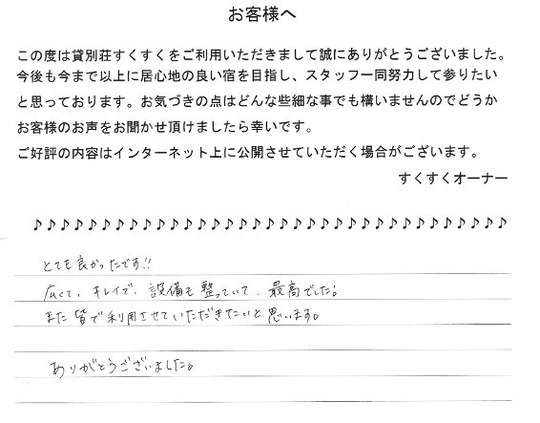 お客様へ
この度は貸別荘すくすくをご利用いただきまして誠にありがとうございました。
今後も今まで以上に居心地の良い宿を目指し、スタッフ一同努力して参りたい
と思っております。お気づきの点はどんな些細な事でも構いませんのでどうか
お客様のお声をお聞かせ頂けましたら幸いです。
ご好評の内容はインターネット上に公開させていただく場合がございます。
すくすくオーナー
♪♪♪♪♪♪♪♪♪♪♪♪♪♪♪♪♪♪♪♪♪♪♪♪♪♪♪♪♪♪♪♪♪♪♪♪
とても良かったです!!
広くて、キレイで、設備も整っていて、最高でした。
また皆で利用させていただきたいと思います。
ありがとうございました。